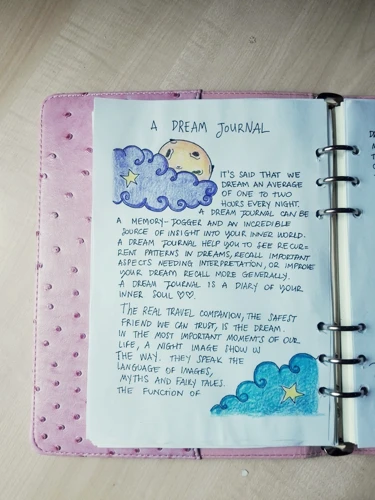 A DREAM JOURNAL
IT'S SAID THAT WE
DREAM AN AVERAGE
OF ONE TO TWO
HOURS EVERY NIGHT.
A DREAM JOURNAL CAN BE
A MEMORY-JOGGER AND AN INCREDIBLE
SOURCE OF INSIGHT INTO YOUR INNER WORLD.
A DREAM JOURNAL HELP YOU TO SEE RECUR-
RENT PATTERNS IN DREAMS, RECALL IMPORTANT
ASPECTS NEEDING INTERPRETATION, OR IMPROVE
YOUR DREAM RECALL MORE GENERALLY.
A DREAM JOURNAL IS A DIARY OF YOUR
INNER SOUL ♡♡.
THE REAL TRAVEL COMPANION, THE SAFEST
FRIEND WE CAN TRUST, IS THE DREAM.
IN THE MOST IMPORTANT MOMENTS OF OUR
LIFE, A NIGHT IMAGE SHOW US
THE WAY. THEY SPEAK THE
LANGUAGE OF IMAGES,
MYTHS AND FAIRY TALES.
THE FUNCTION OF